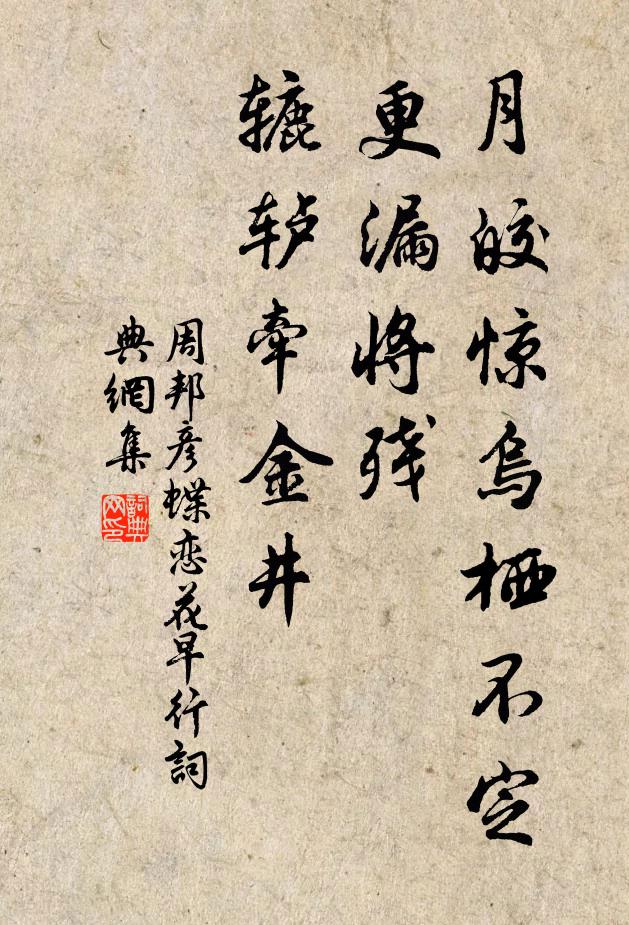 月皎惊乌栖不定
更漏将残
辘轳牵金井
周邦彦蝶恋花早行詞
典網集
詞典网印